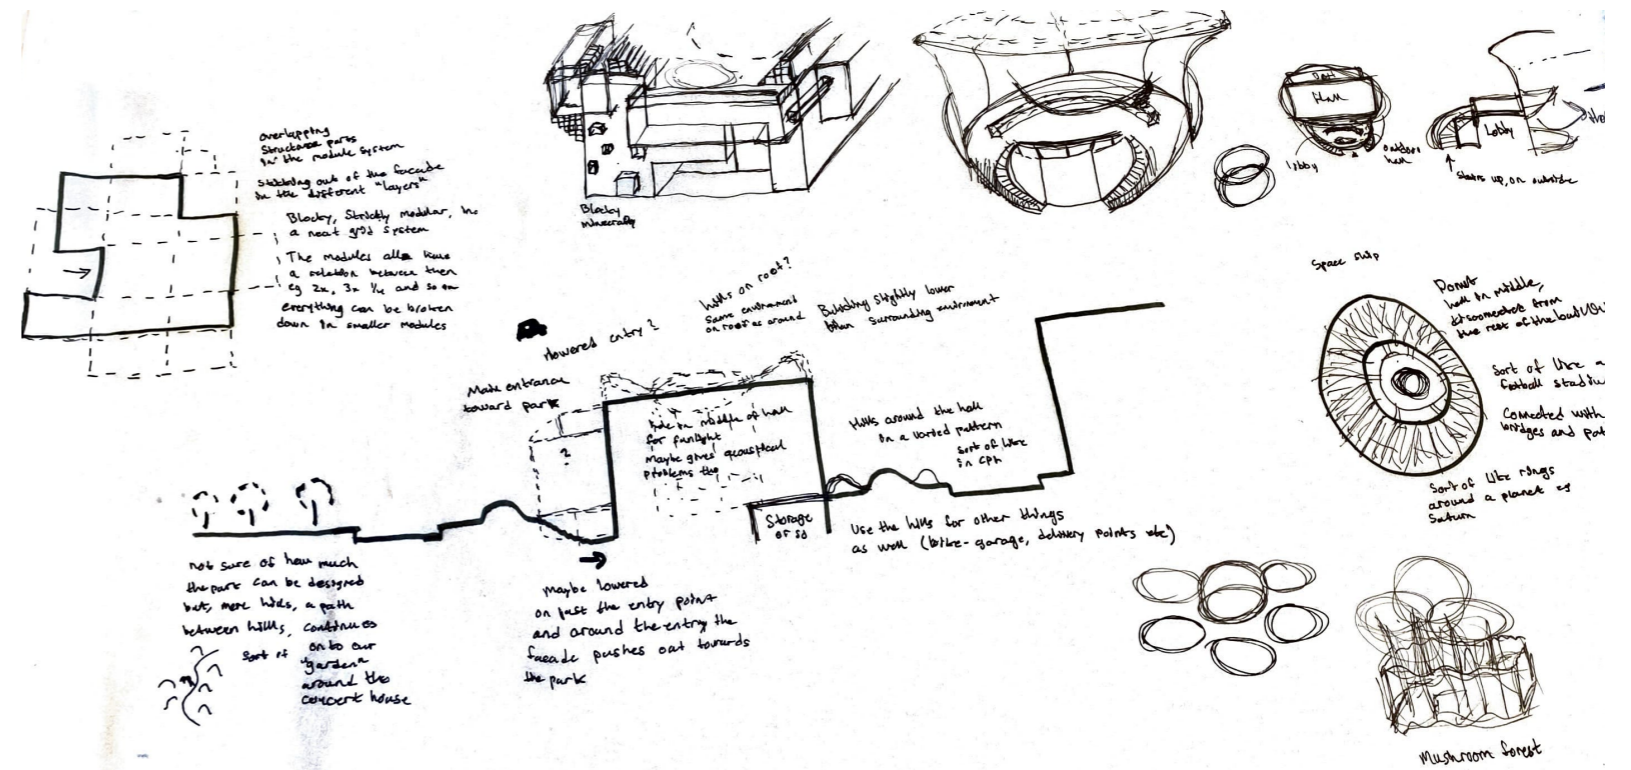 overlapping
structure parts
in the module system
sticking out of the facade
in the different "layers"
Blocky, strictly modular, in
a neat grid system
The modules all have
a relation between them
eg 2x, 3x 1/4 and so on
everything can be broken
down in smaller modules
Blocky
minecrafty
Hall
lobby
outdoor
hall
Lobby
stairs up, on outside
Space ship
Donut
hall in middle,
disconnected from
the rest of the
Sort of like a
football
Connected with
bridges and
Sort of like rings
around a planet eg
Saturn
hills on roof?
same environment
on roof as around
Building slightly lower
than surrounding environment
lowered entry?
Main entrance
toward park
?
hole in middle of hall
for sunlight
Maybe gives acoustical
problems tho
Hills around the hall
in a varied pattern
sort of like
in cph
Storage
or sd
Use the hills for other things
as well (bike-garage, delivery points etc)
not sure of how much
the park can be designed
but, more hills, a path
between hills, continues
onto our
"garden"
around the
concert house
sort of
Maybe lowered
on just the entry point
and around the entry the
facade pushes out towards
the park
Mushroom forest